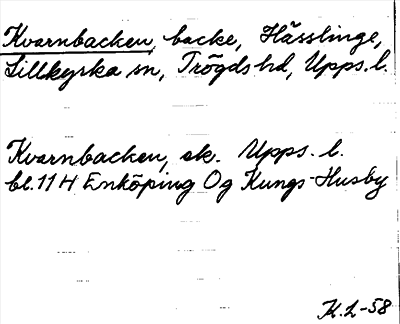 Kvarnbacken, backe, Hässlinge,
Lillkyrka sn, Trögds hd, Upps. l.
Kvarnbacken, ek. Upps. l.
bl. 114 Enköping Og Kungs-Husby
K.L-58